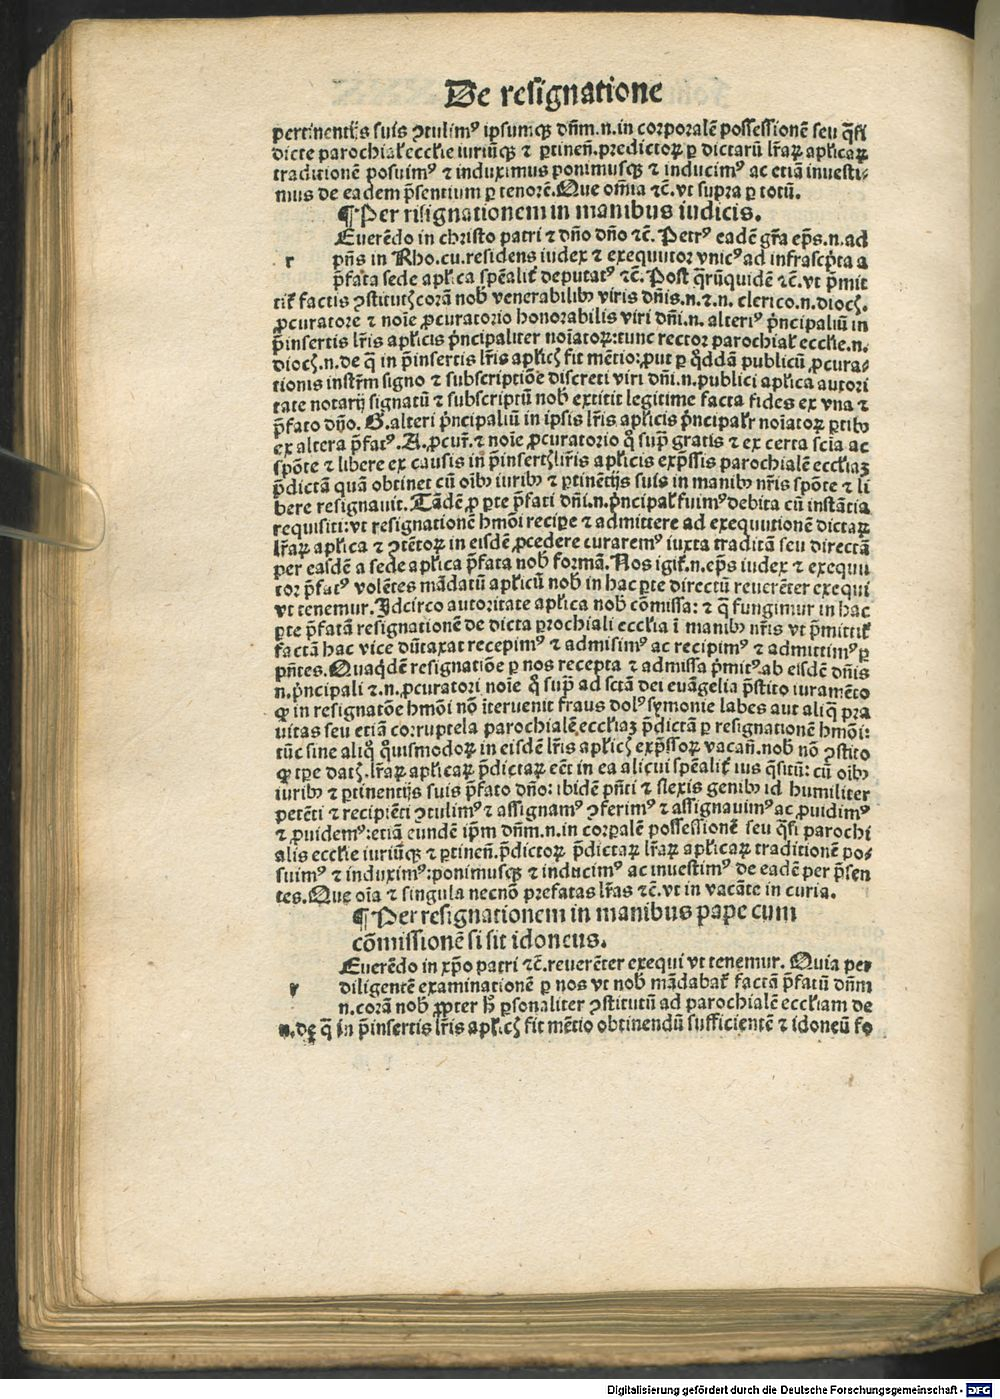 De resignatione
pertinentijs suis ↄtulimꝰ ipsumqꝫ dñm.n.in corporalẽ possessionẽ seu q̃si
dicte parochial̕ ecclie iuriũqꝫ ⁊ ꝑtineñ.predictoꝝ ꝑ dictarũ lr̃aꝝ aplicaꝝ
traditionẽ posuimꝰ ⁊ induximus ponimusqꝫ ⁊ inducimꝰ ac etiã inuesti-
mus de eadem p̃sentium ꝑ tenorẽ.Que om̃ia ⁊c̃.vt supra ꝑ totũ.
¶ Per risignationem in manibus iudicis.
Euerẽdo in christo patri ⁊ dño dño ⁊c̃. Petrꝰ eadẽ gr̃a ep̃s.n.ad
r pñs in Rho.cu.residens iudex ⁊ exequutor vnicꝰ ad infrascp̃ta a
p̃fata sede aplica spẽalit̕ deputatꝰ ⁊c̃. Post q̃rũquidẽ ⁊c̃.vt p̃mit
tit̕ factis ↄstitutꝭ corã nob̕ venerabilibꝰ viris dñis.n.⁊.n. clerico.n.diocꝭ.
ꝓcuratore ⁊ noĩe ꝓcuratorio honorabilis viri dñi.n. alteriꝰ p̃ncipaliũ in
p̃insertis lr̃is aplicis p̃ncipaliter noĩatoꝝ:tunc rector parochial̕ ecclie.n.
diocꝭ.n.de q̃ in p̃insertis lr̃is aplicꝭ fit mẽtio:ꝓut ꝑ q̃ddã publicũ ꝓcura-
tionis instr̃m signo ⁊ subscriptiõe discreti viri dñi.n.publici aplica autori
tate notarij signatũ ⁊ subscriptũ nob̕ extitit legitime facta fides ex vna ⁊
p̃fato dño. G.alteri p̃ncipaliũ in ipsis lr̃is aplicis p̃ncipalr̕ noĩatoꝝ ꝑtibꝰ
ex altera p̃fatꝰ.A.ꝓcur̃.⁊ noĩe ꝓcuratorio q̊ sup̃ gratis ⁊ ex certa scĩa ac
spõte ⁊ libere ex causis in p̃insertꝭ lr̃is aplicis exp̃ssis parochialẽ eccliaꝫ
p̃dictã quã obtinet cũ oĩbꝰ iuribꝰ ⁊ ꝑtinẽtijs suis in manibꝰ nr̃is spõte ⁊ li
bere resignauit.Tãdẽ ꝓ ꝑte p̃fati dñi.n.p̃ncipal̕ fuimꝰ debita cũ instãtia
requisiti:vt resignationẽ hmõi recipe ⁊ admittere ad exequutionẽ dictaꝝ
lr̃aꝝ aplica ⁊ ↄtẽtoꝝ in eisdẽ ꝓcedere curaremꝰ iuxta traditã seu directã
per easdẽ a sede aplica p̃fata nob̕ formã.Nos igit̕.n.ep̃s iudex ⁊ exequu
tor p̃fatꝰ volẽtes mãdatũ aplicũ nob̕ in hac ꝑte directũ reuerẽter exequi
vt tenemur.Idcirco autoritate aplica nob̕ cõmissa: ⁊ q̃ fungimur in hac
ꝑte p̃fatã resignationẽ de dicta ꝑrochiali ecclia ĩ manibꝰ nr̃is vt p̃mittit̕
factã hac vice dũtaxat recepimꝰ ⁊ admisimꝰ ac recipimꝰ ⁊ admittimꝰ ꝑ
pñtes.Quaq̃dẽ resignatiõe ꝑ nos recepta ⁊ admissa p̃mitꝰ.ab eisdẽ dñis
n.p̃ncipali ⁊.n.ꝓcuratori noĩe q̊ sup̃ ad sctã dei euãgelia p̃stito iuramẽto
ꝙ in resignatõe hmõi nõ ĩteruenit fraus dolꝰ symonie labes aut aliq̃ pra
uitas seu etiã corruptela parochialẽ eccliaꝫ p̃dictã ꝑ resignationẽ hmõi:
tũc sine aliq̊ q̊uismodoꝝ in eisdẽ lr̃is aplicꝭ exp̃ssoꝝ vacañ.nob̕ nõ ↄstito
ꝙ tꝑe datꝭ.lr̃aꝝ aplicaꝝ p̃dictaꝝ eẽt in ea alicui spẽalit̕ ius q̃sitũ: cũ oĩbꝰ
iuribꝰ ⁊ ꝑtinentijs suis p̃fato dño: ibidẽ pñti ⁊ flexis genibꝰ id humiliter
petẽti ⁊ recipiẽti ↄtulimꝰ ⁊ assignamꝰ ↄferimꝰ ⁊ assignauimꝰ ac ꝓuidimꝰ
⁊ ꝓuidemꝰ:etiã eundẽ ip̃m dñm.n.in corꝑalẽ possessionẽ seu q̃si parochi
alis ecclie iuriũqꝫ ⁊ ꝑtineñ.p̃dictoꝝ p̃dictaꝝ lr̃aꝝ aplicaꝝ traditionẽ po-
suimꝰ ⁊ induximꝰ:ponimusqꝫ ⁊ inducimꝰ ac inuestimꝰ de eadẽ per p̃sen
tes.Que oĩa ⁊ singula necnõ prefatas lr̃as ⁊c̃.vt in vacãte in curia.
¶ Per resignationem in manibus pape cum
cõmissionẽ si sit idoneus.
Euerẽdo in xp̃o patri ⁊c̃.reuerẽter exequi vt tenemur. Quia per
r diligentẽ examinationẽ ꝑ nos vt nob̕ mãdabat̕ factã p̃fatũ dñm
n.corã nob̕ ꝓpter h̕ ꝑsonaliter ↄstitutũ ad parochialẽ eccliam de
n.de q̃ in p̃insertis lr̃is aplicꝭ fit mẽtio obtinendũ sufficientẽ ⁊ idoneũ fo
Digitalisierung gefördert durch die Deutsche Forschungsgemeinschaft - DFG